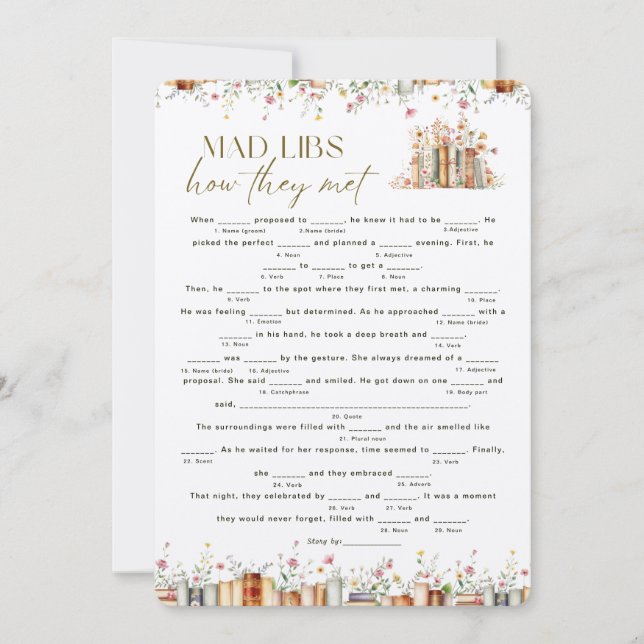 MAD LIBS
how they met
When _______ proposed to _______, he knew it had to be _______. He
1. Name (groom) 2.Name (bride) 3.Adjective
picked the perfect _______ and planned a _______ evening. First, he
4. Noun 5. Adjective
_______ to _______ to get a _______.
6. Verb 7. Place 8. Noun
Then, he _______ to the spot where they first met, a charming _______.
9. Verb 10. Place
He was feeling _______ but determined. As he approached _______ with a
11. Emotion 12. Name (bride)
_______ in his hand, he took a deep breath and _______.
13. Noun 14. Verb
_______ was _______ by the gesture. She always dreamed of a _______
15. Name (bride) 16. Adjective 17. Adjective
proposal. She said _______ and smiled. He got down on one _______ and
18. Catchphrase 19. Body part
said, ___________________________________________________.
20. Quote
The surroundings were filled with _______ and the air smelled like
21. Plural noun
_______. As he waited for her response, time seemed to _______. Finally,
22. Scent 23. Verb
she _______ and they embraced _______.
24. Verb 25. Adverb
That night, they celebrated by _______ and _______. It was a moment
26. Verb 27. Verb
they would never forget, filled with _______ and _______.
28. Noun 29. Noun
Story by:______________